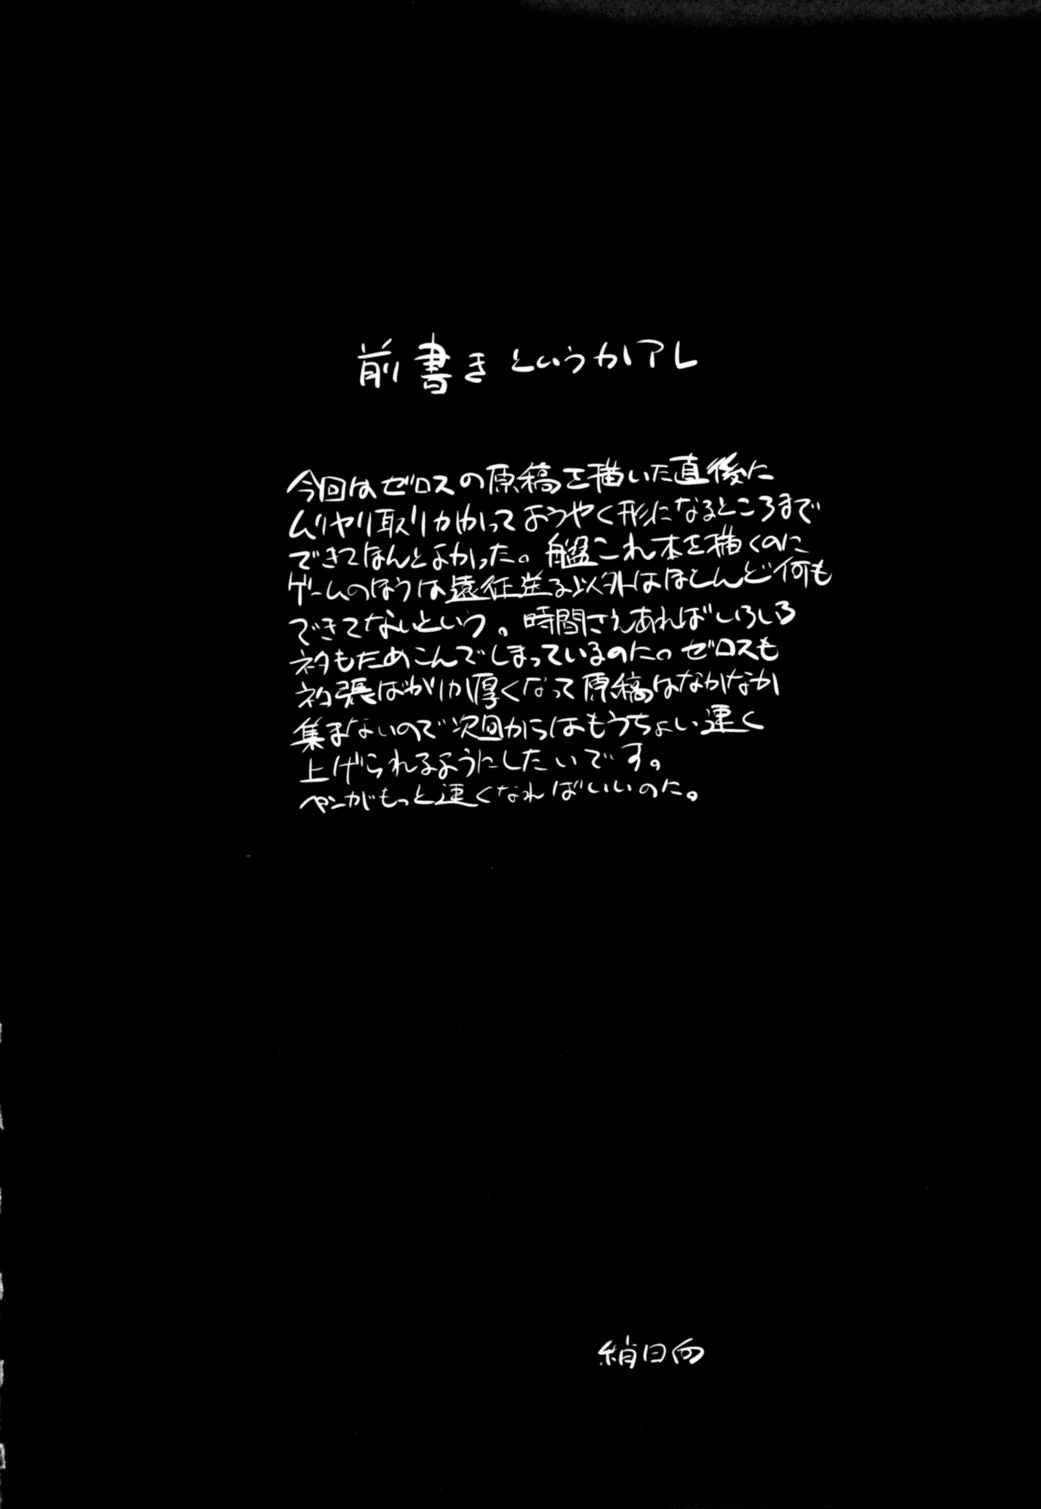 前書きというかアレ
今回はゼロスの原稿を描いた直後に
ムリヤリ取りかかってようやく形になるところまで
できてほんとよかった。艦これ本を描くのに
ゲームのほうは遠征送る以外はほとんど何も
できてないという。時間さえあればいろいろ
ネタもためこんでしまっているのに。ゼロスも
ネタ張ばかりが厚くなって原稿はなかなか
集まないので次回からはもうちょい速く
上げられるようにしたいです。
ペンがもっと速くなればいいのに。
絹日向